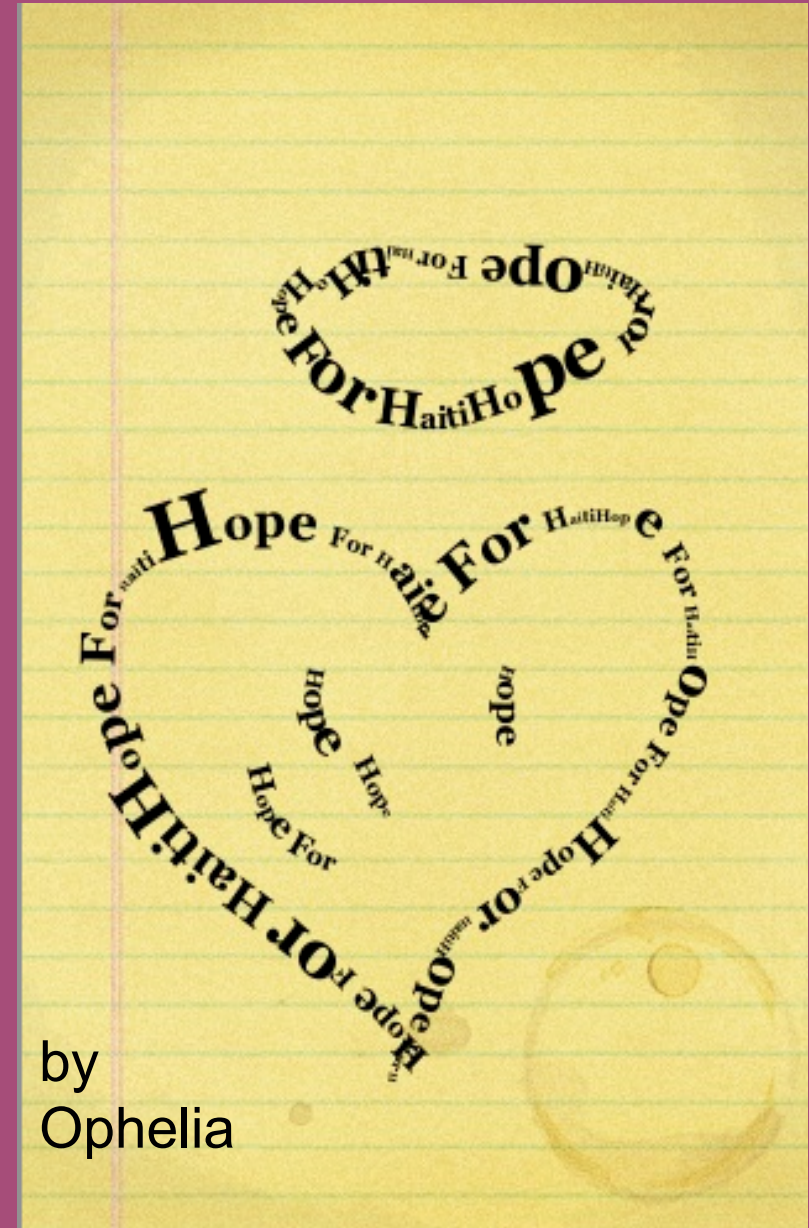 Hope For HaitiHope For
Haiti Ope For Haiti
For Haiti Hope For Hai
e For HaitiHope For Haiti Ope For Haiti Hope For Haiti Ope
Hope For HaitiHope For
Hope
Hope
Hope
Hope For
by
Ophelia